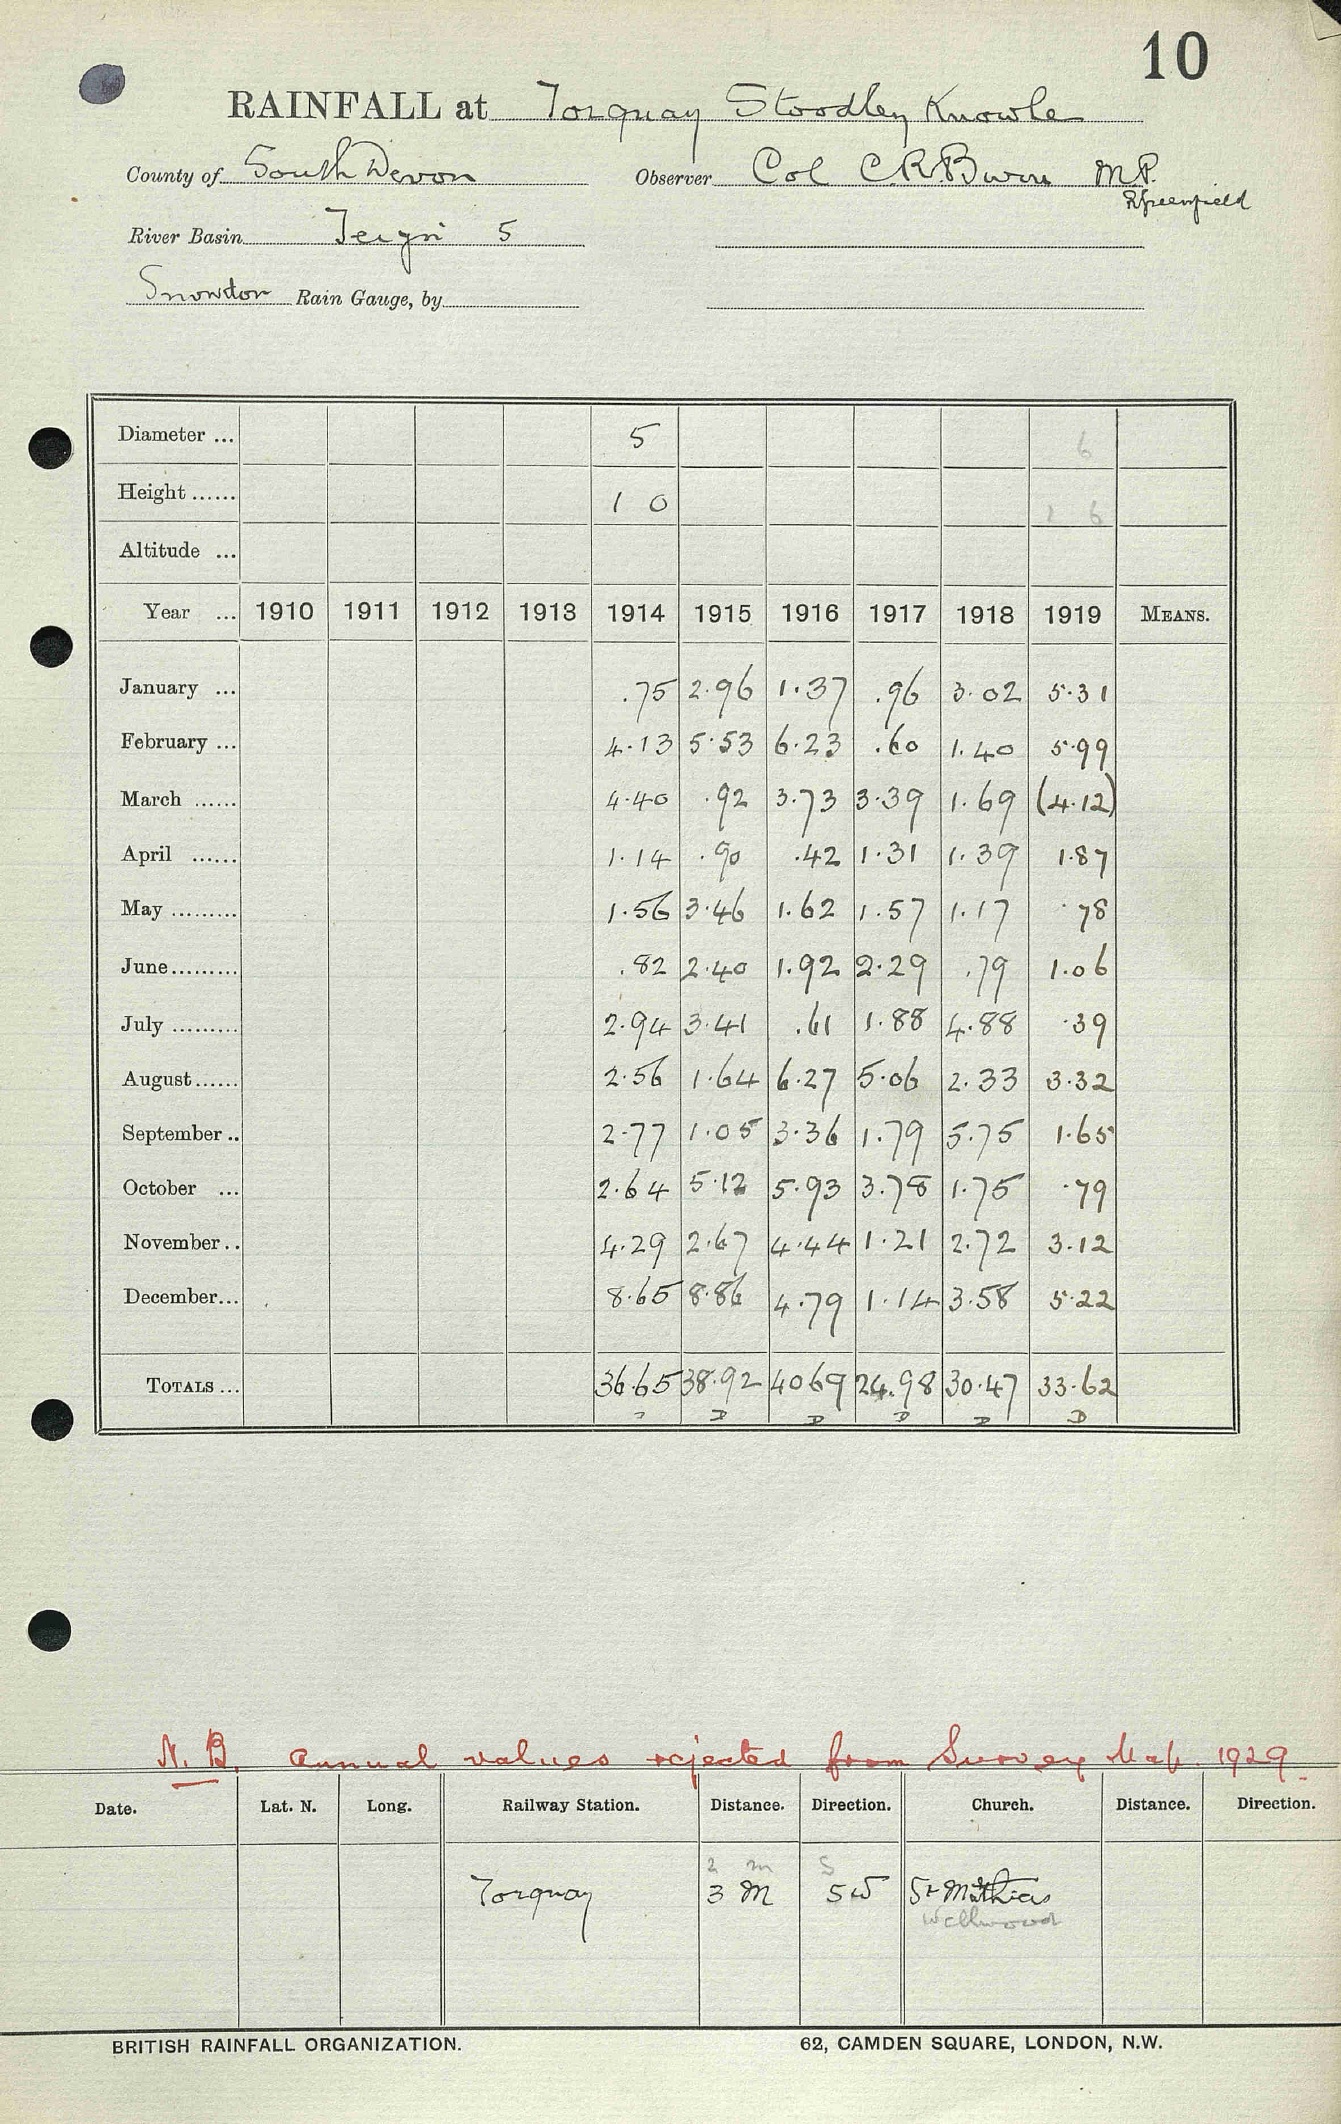 10
RAINFALL at Torquay Stoodley Knowle
County of South Devon Observer Col C.R. Burn M.P.
R Greenfield
River Basin Teign 5
Snowdon Rain Gauge, by
Diameter ... 5 6
Height ...... 1 0 1 6
Altitude ...
Year ... 1910 1911 1912 1913 1914 1915 1916 1917 1918 1919 MEANS.
January ... .75 2.96 1.37 .96 3.02 5.31
February ... 4.13 5.53 6.23 .60 1.40 5.99
March ...... 4.40 .92 3.73 3.39 1.69 (4.12)
April ...... 1.14 .90 .42 1.31 1.39 1.87
May ......... 1.56 3.46 1.62 1.57 1.17 .78
June ......... .82 2.40 1.92 2.29 .79 1.06
July ......... 2.94 3.41 .61 1.88 4.88 .39
August ...... 2.56 1.64 6.27 5.06 2.33 3.32
September .. 2.77 1.05 3.36 1.79 5.75 1.65
October ... 2.64 5.12 5.93 3.78 1.75 .79
November .. 4.29 2.67 4.44 1.21 2.72 3.12
December ... 8.65 8.86 4.79 1.14 3.58 5.22
TOTALS ... 36.65 38.92 4069 24.98 30.47 33.62
D D D D D
N.B. Annual values rejected from Survey Map. 1929.
Date. Lat. N. Long. Railway Station. Distance. Direction. Church. Distance. Direction.
2 m S
Torquay 3 M SW St Mathias
Wellswood
BRITISH RAINFALL ORGANIZATION. 62, CAMDEN SQUARE, LONDON, N.W.